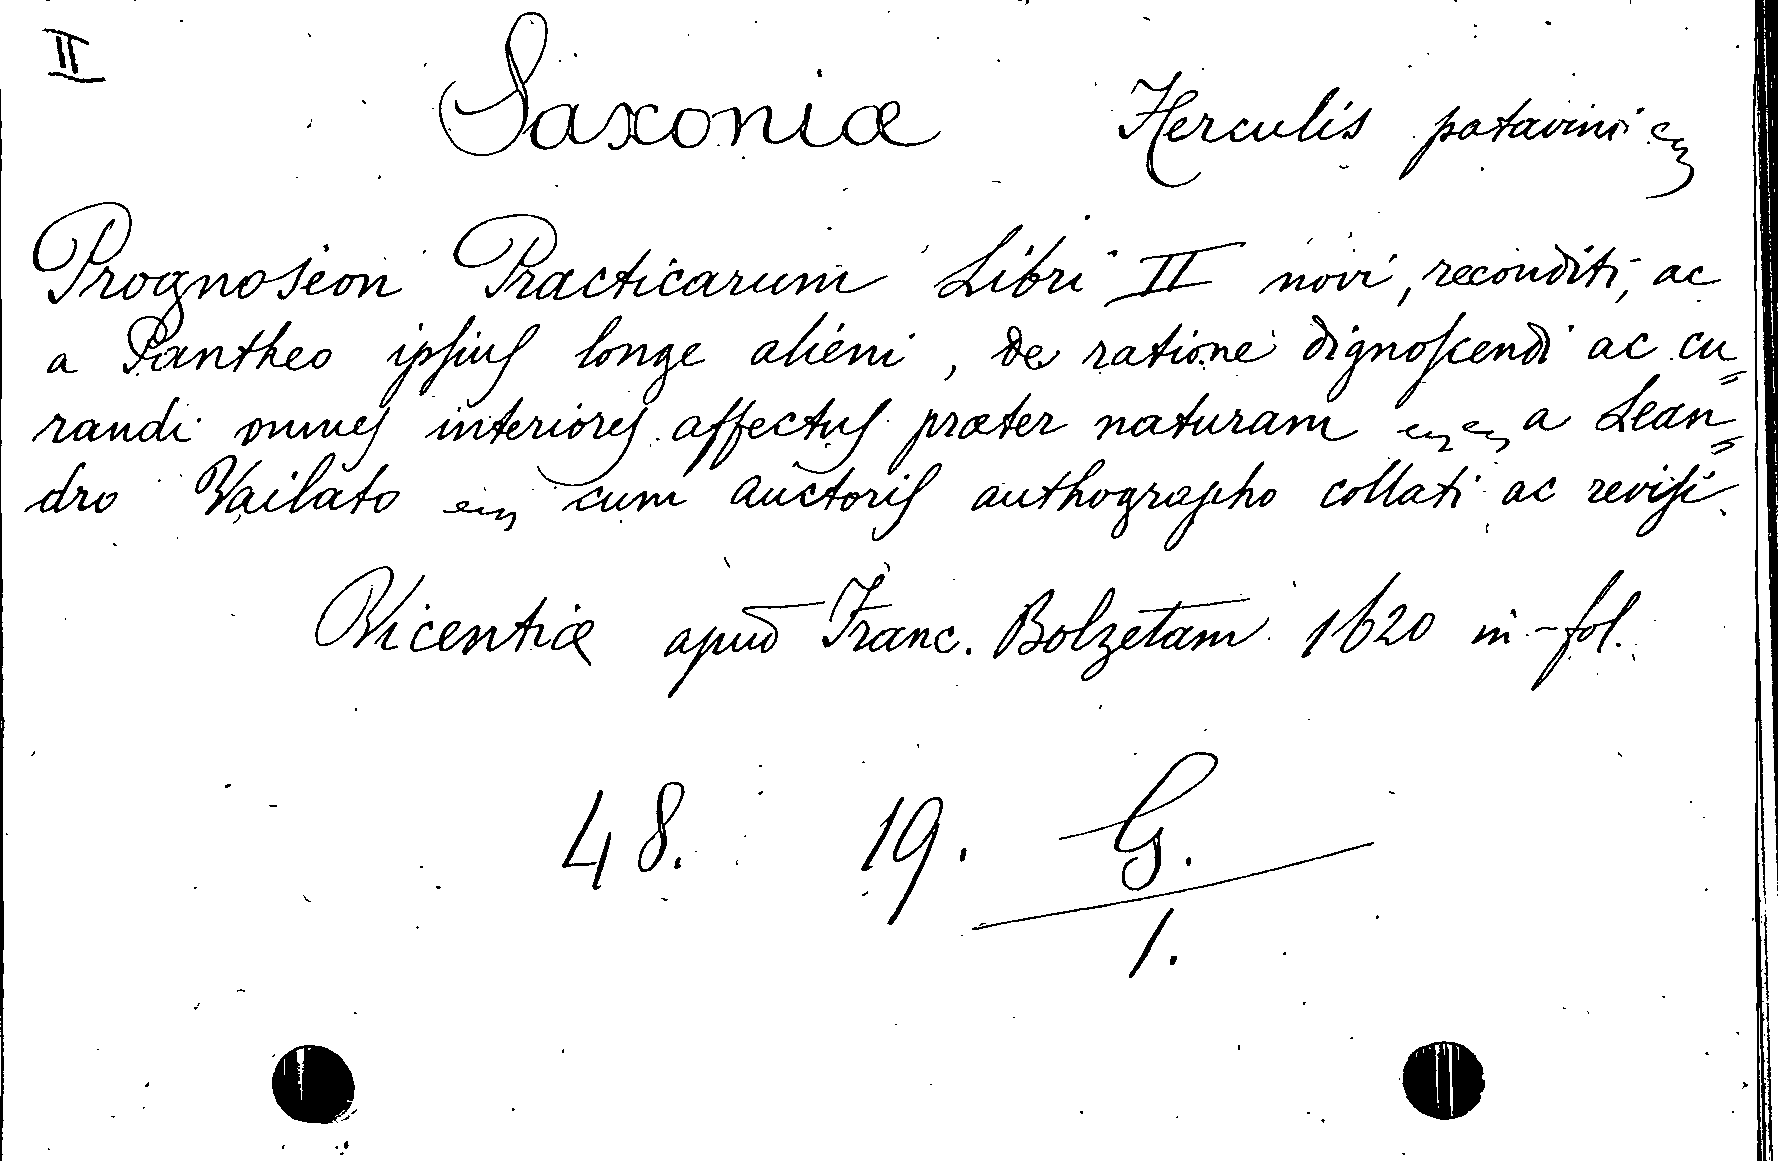 II
Saxoniæ Herculis patavini
Prognoseon Practicarum Libri II novi, reconditi, ac
a Pantheo ipſiuſ longe alieni, de ratione dignoſcendi ac cu=
randi omneſ interioreſ affectuſ præter naturam a Lean=
dro Vailato cum auctoriſ authographo collati ac reviſi.
Vicentiæ apud Franc. Bolzetam 1620 in-fol.
48. 19. G.
1.